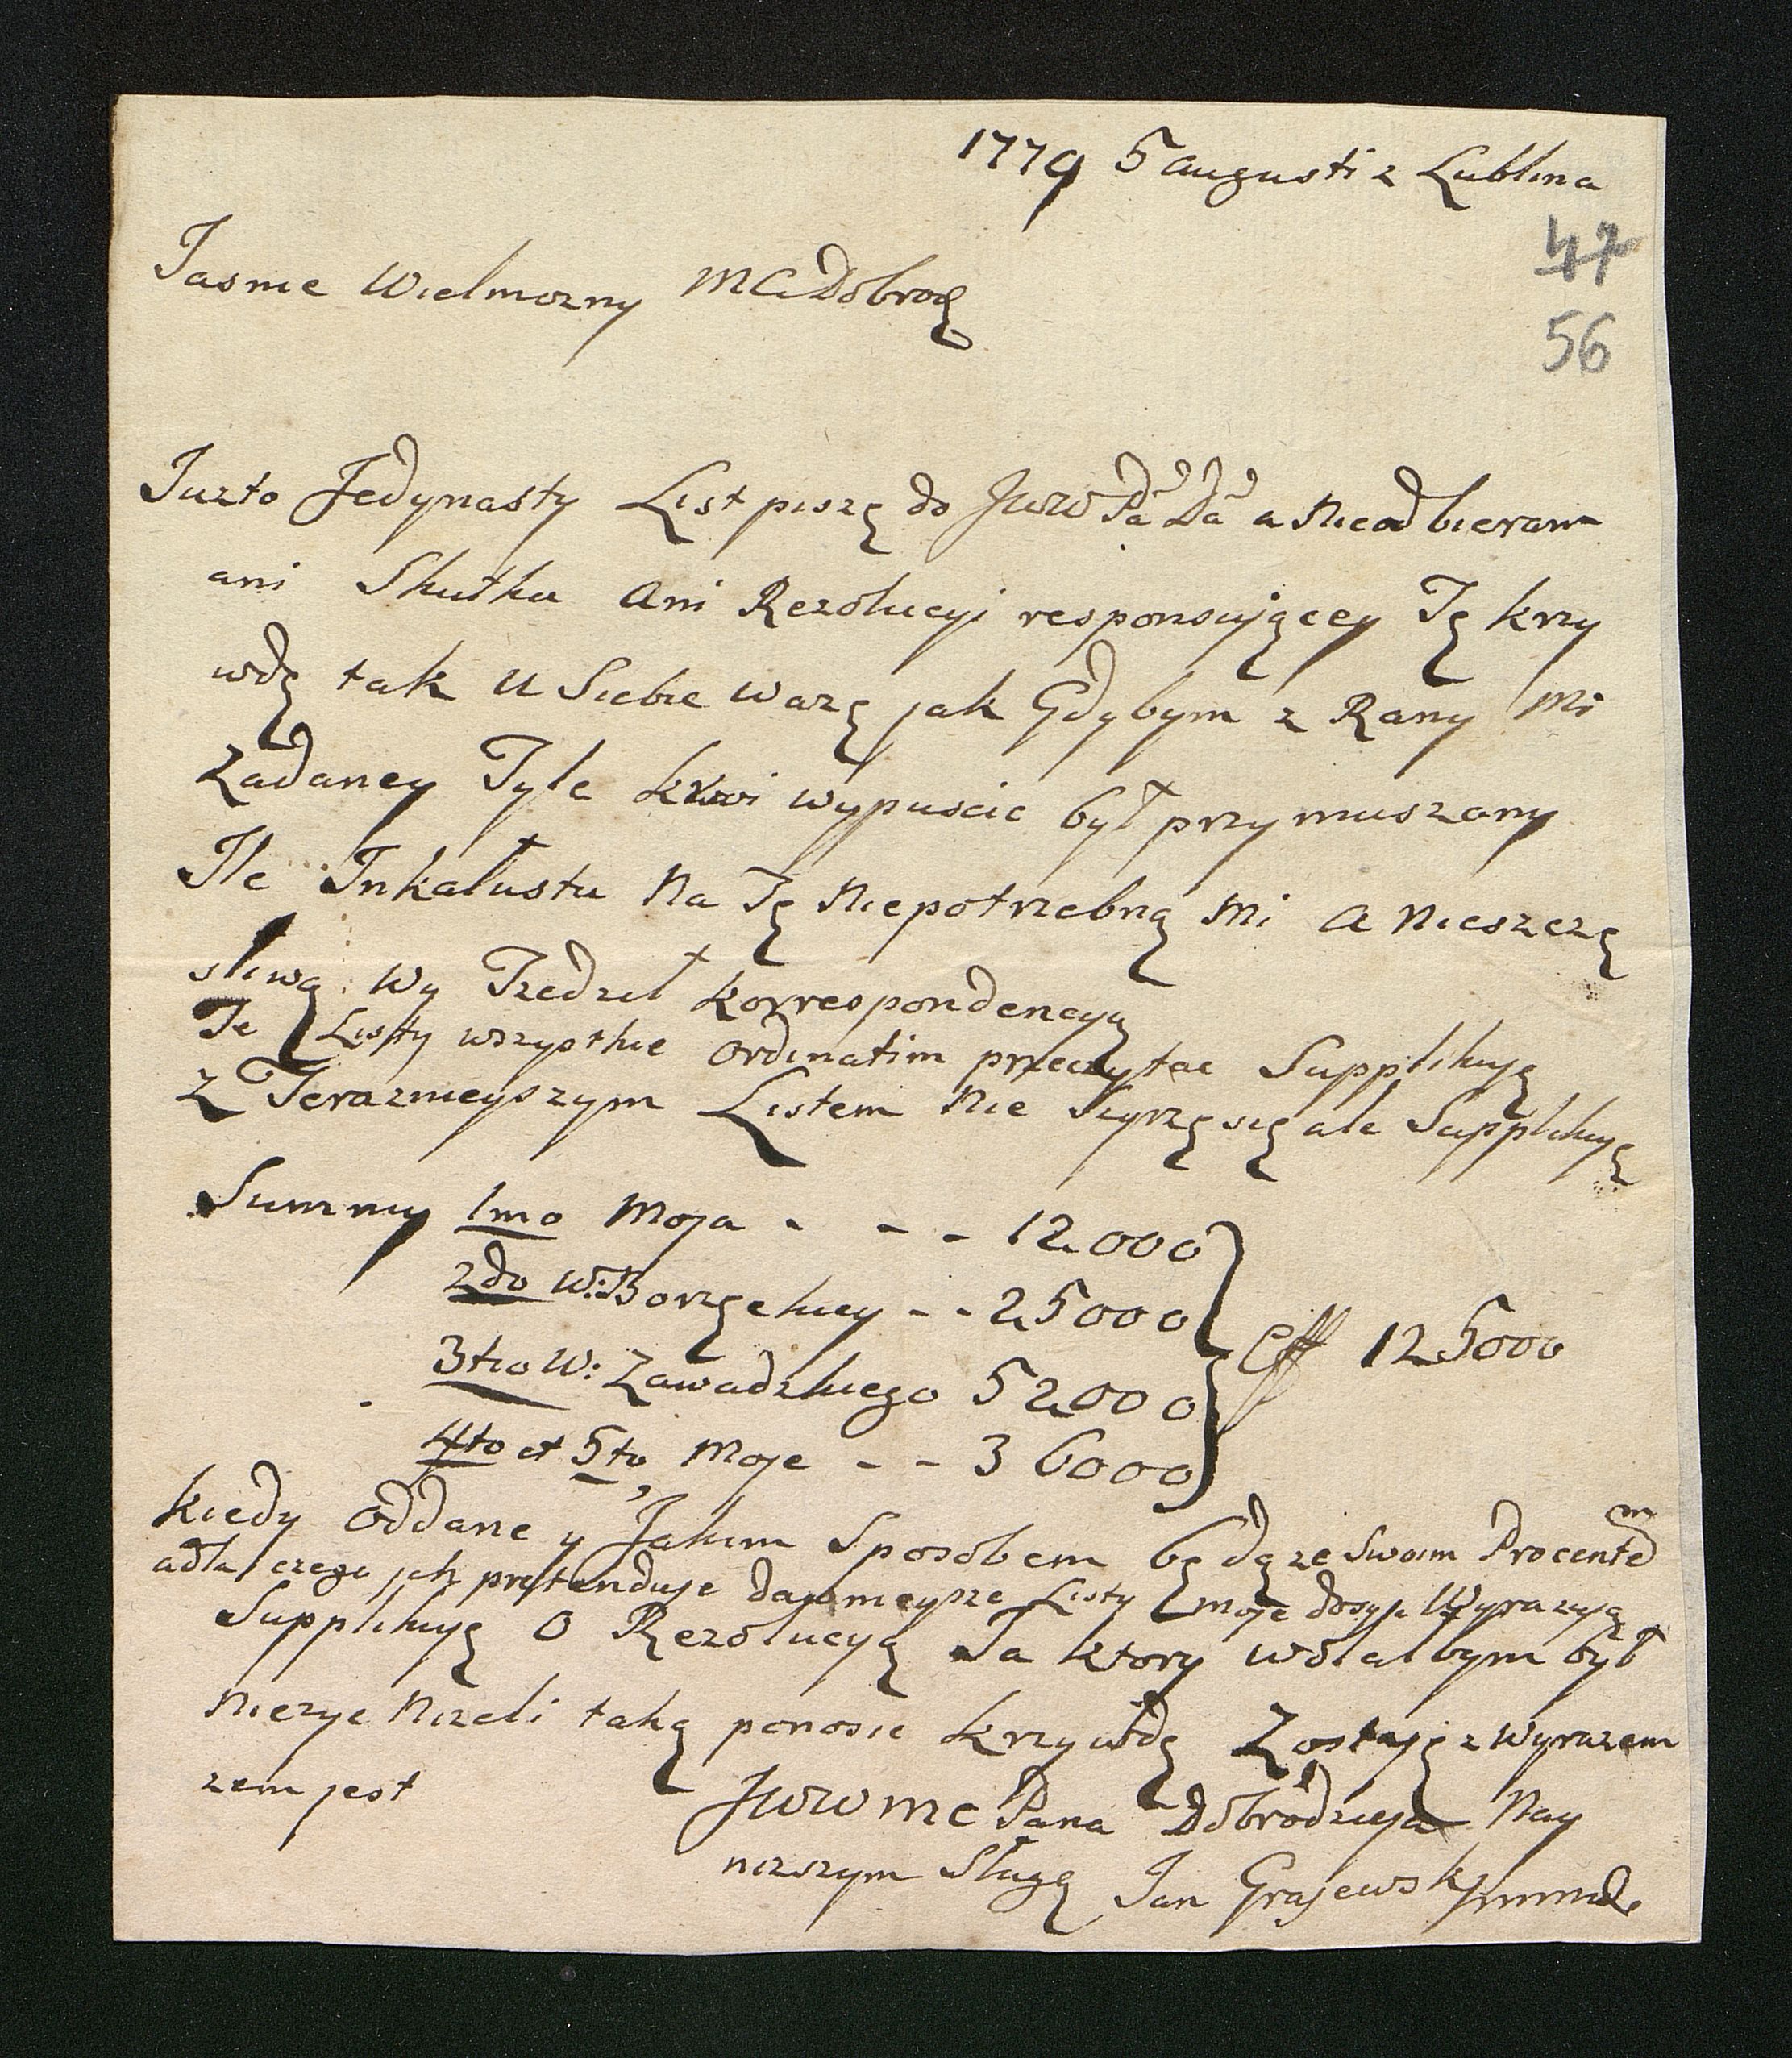 1779 5 augusti z Lublina
47
56
Jasnie Wielmozny MCi Dobrodz
Juzto Jedynasty List piszę do JWW Pa Da a Nieodbieram
ani Skutku Ani Rezolucyi responsującey Tę krzy
wdę tak U Siebie Wazę jak Gdybym z Rany Mi
Zadaney Tyle krwi wypuscic był przymuszony
Ile Inkaustu Na Tę Niepotrzebną Mi a Nieszczę
sliwą Wy korrespondencyą
Te Listy wszystkie Ordinatim przeczytac Supplikuję
Z Teraznieyszym Listem Nie się ale Supplikuję
Summy 1mo Moja - - - 12000
2do W: Borzęckiey - - 25000
3tio W: Zawadzkiego 52000
Eff 125000
4to et 5to Moje - - 36000
kiedy Oddane y Jakim Sposobem będą ze Swoim Procentem
adla czego jak prętenduje Listy moje dosyc Wyrazyią
Supplikuję O Rezolucyą Ja ktory wolałbym był
Niezyc Nizeli taką ponosic krzywdę Zostaję z Wyrazem
zem jest JWW MC Pana Dobrodzieja Nay
nizszym Sługą Jan Grajewski mmde